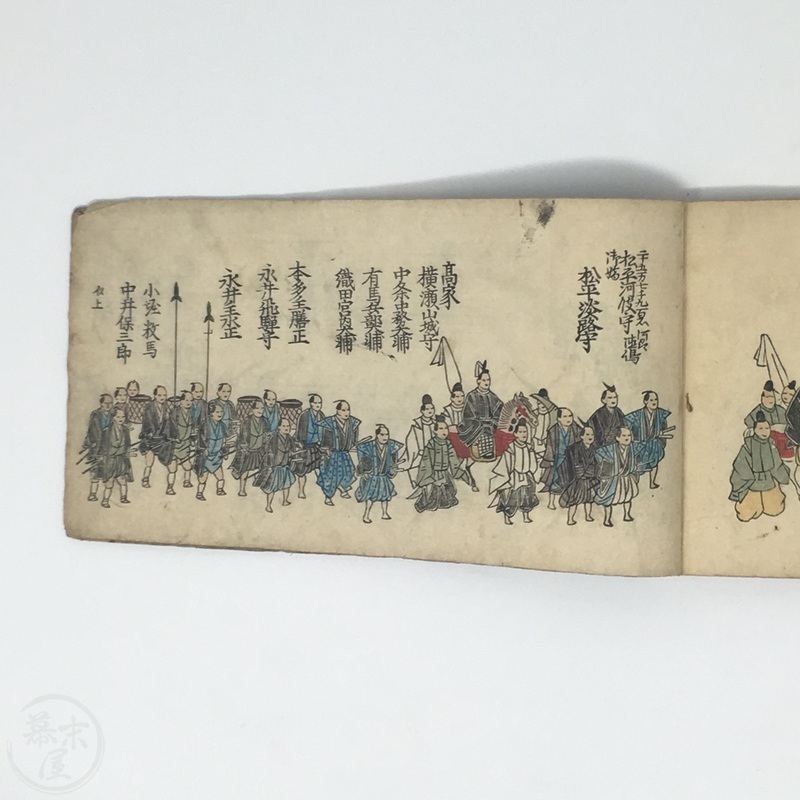 松平河後守
松平淡路守
高家
横瀬山城守
中条中務大輔
有馬兵部大輔
織田宮内大輔
本多主膳正
永井飛騨守
永井主水正
小堀数馬
中井保三郎
以上
幕末屋